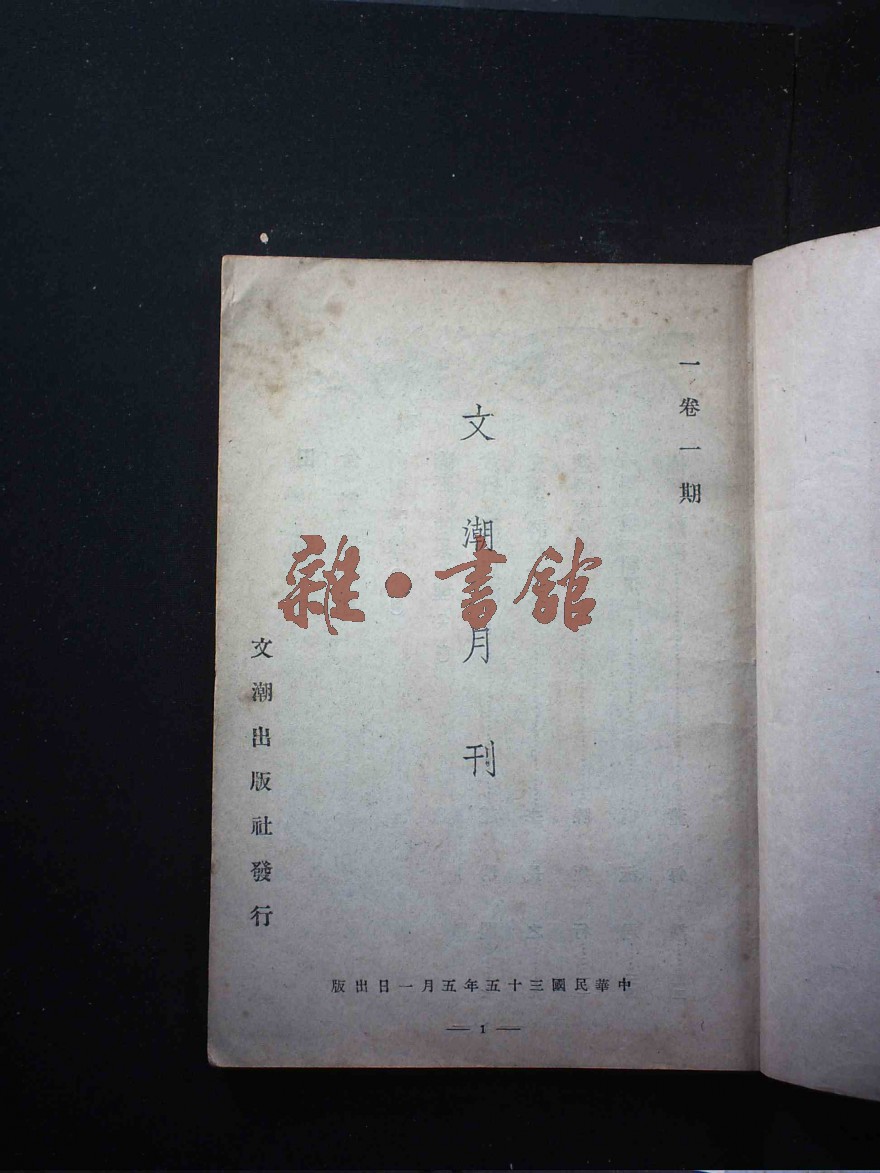 一卷一期
文潮月刊
文潮出版社發行
中華民國三十五年五月一日出版
— 1 —
雜·書館